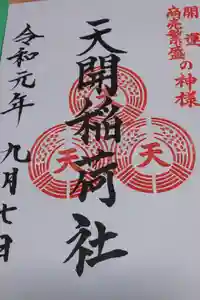 開運
商売繁盛の神様
天開稲荷社
天
天
令和元年 九月七日